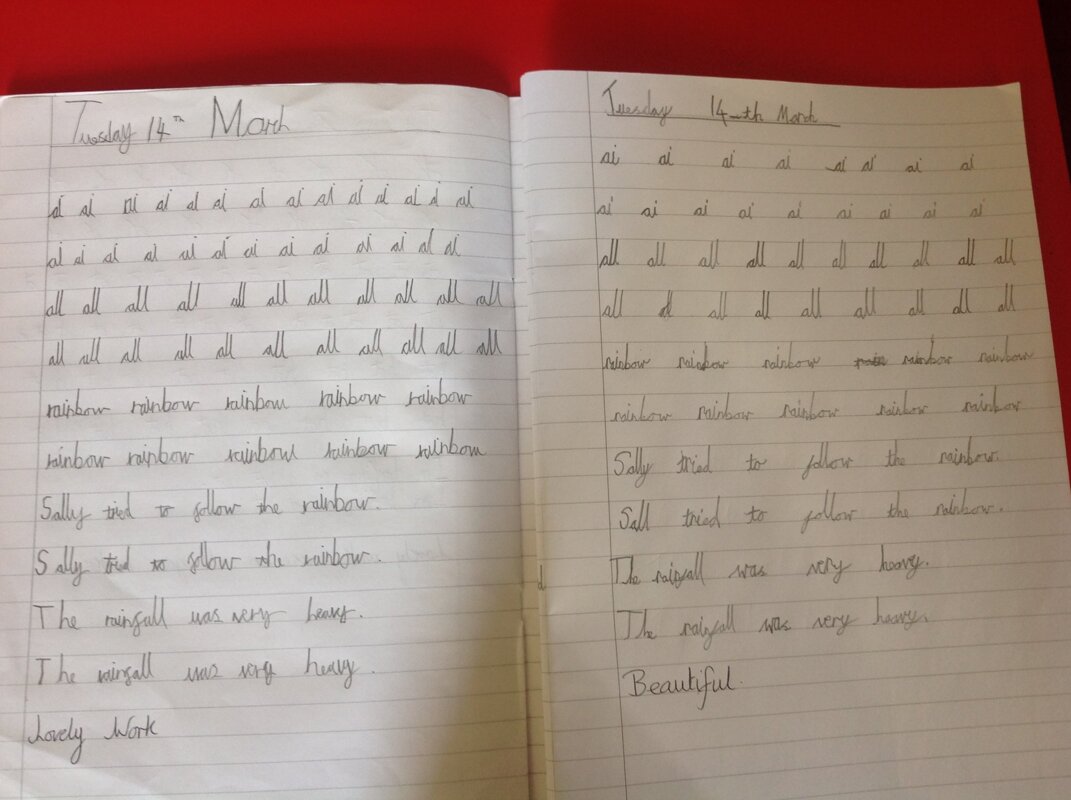 Tuesday 14th March
ai ai ai ai ai ai ai ai ai ai ai ai ai ai
ai ai ai ai ai ai ai ai ai ai ai ai ai
all all all all all all all all all all all
all all all all all all all all all all all
rainbow rainbow rainbow rainbow rainbow
rainbow rainbow rainbow rainbow rainbow
Sally tried to follow the rainbow.
Sally tried to follow the rainbow.
The rainfall was very heavy.
The rainfall was very heavy.
Lovely Work
Tuesday 14th March
ai ai ai ai ai ai ai ai
ai ai ai ai ai ai ai ai ai
all all all all all all all all all all
all all all all all all all all all
rainbow rainbow rainbow rainbow rainbow
rainbow rainbow rainbow rainbow rainbow
Sally tried to follow the rainbow.
Sall tried to follow the rainbow.
The rainfall was very heavy.
The rainfall was very heavy.
Beautiful.